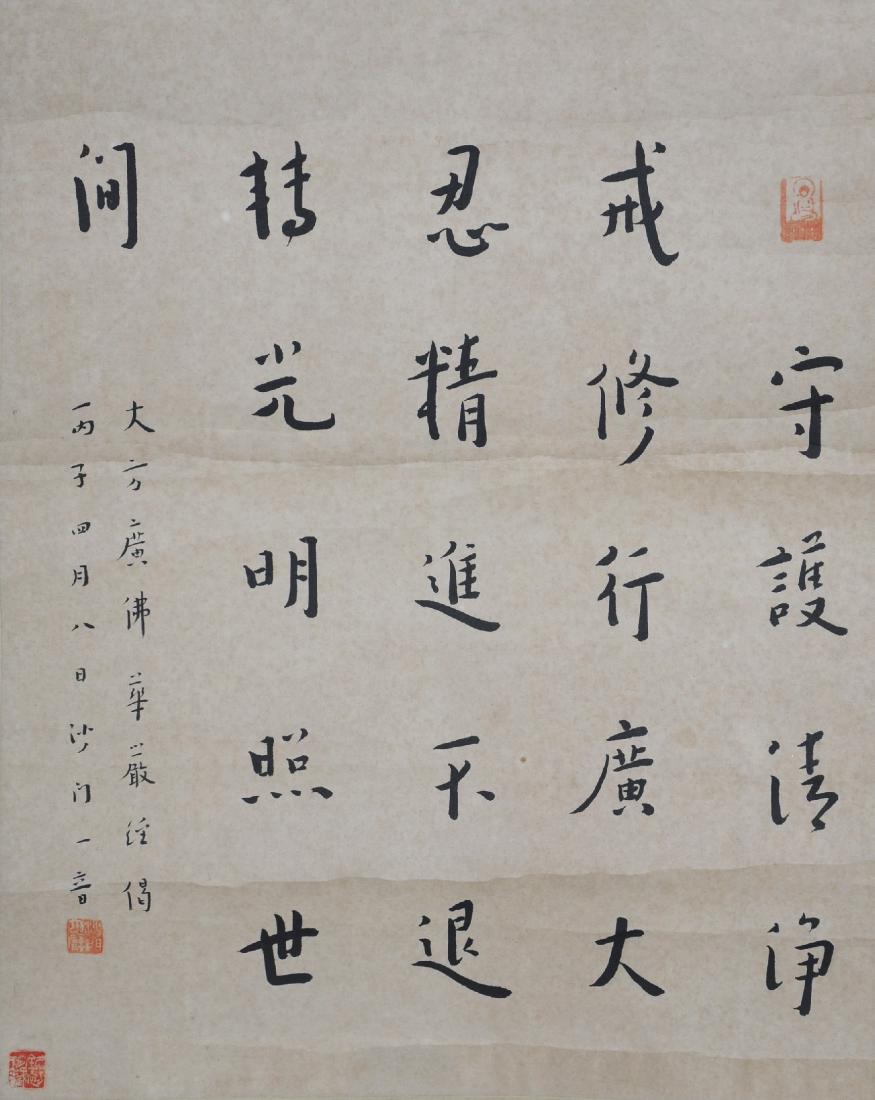 守護清淨
戒修行廣大
忍精進不退
轉光明照世
间
大方廣佛華嚴經偈
丙子四月八日沙门一音